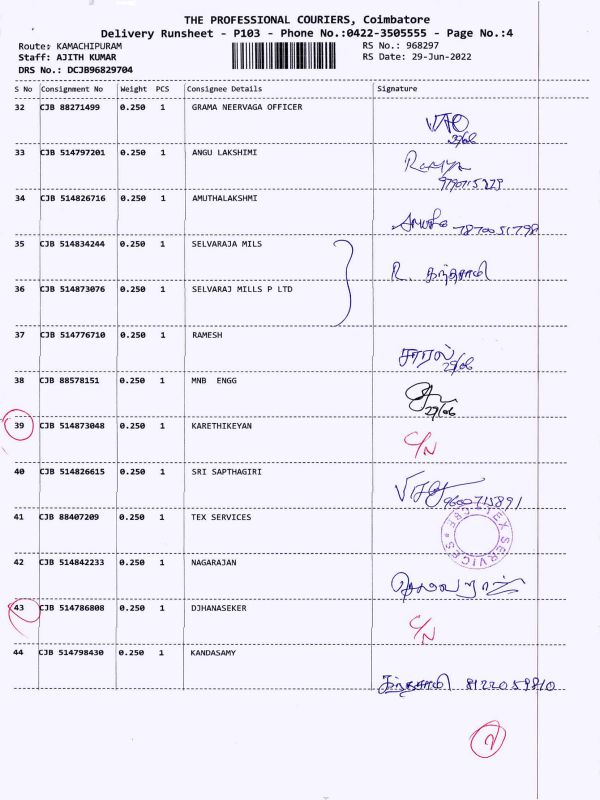 THE PROFESSIONAL COURIERS, Coimbatore
Delivery Runsheet - P103 - Phone No.:0422-3505555 - Page No.:4
Route: KAMACHIPURAM RS No.: 968297
Staff: AJITH KUMAR RS Date: 29-Jun-2022
DRS No.: DCJB96829704
S No Consignment No Weight PCS Consignee Details Signature
32 CJB 88271499 0.250 1 GRAMA NEERVAGA OFFICER
VAO
29/06
33 CJB 514797201 0.250 1 ANGU LAKSHIMI
Ramya
34 CJB 514826716 0.250 1 AMUTHALAKSHMI
7870051798
35 CJB 514834244 0.250 1 SELVARAJA MILS
R.
36 CJB 514873076 0.250 1 SELVARAJ MILLS P LTD
37 CJB 514776710 0.250 1 RAMESH
29/06
38 CJB 88578151 0.250 1 MNB ENGG
29/06
39 CJB 514873048 0.250 1 KARETHIKEYAN
C/N
40 CJB 514826615 0.250 1 SRI SAPTHAGIRI
9600715891
41 CJB 88407209 0.250 1 TEX SERVICES
TEX SERVICES * CBE *
42 CJB 514842233 0.250 1 NAGARAJAN
43 CJB 514786808 0.250 1 DJHANASEKER
C/N
44 CJB 514798430 0.250 1 KANDASAMY
8122059810